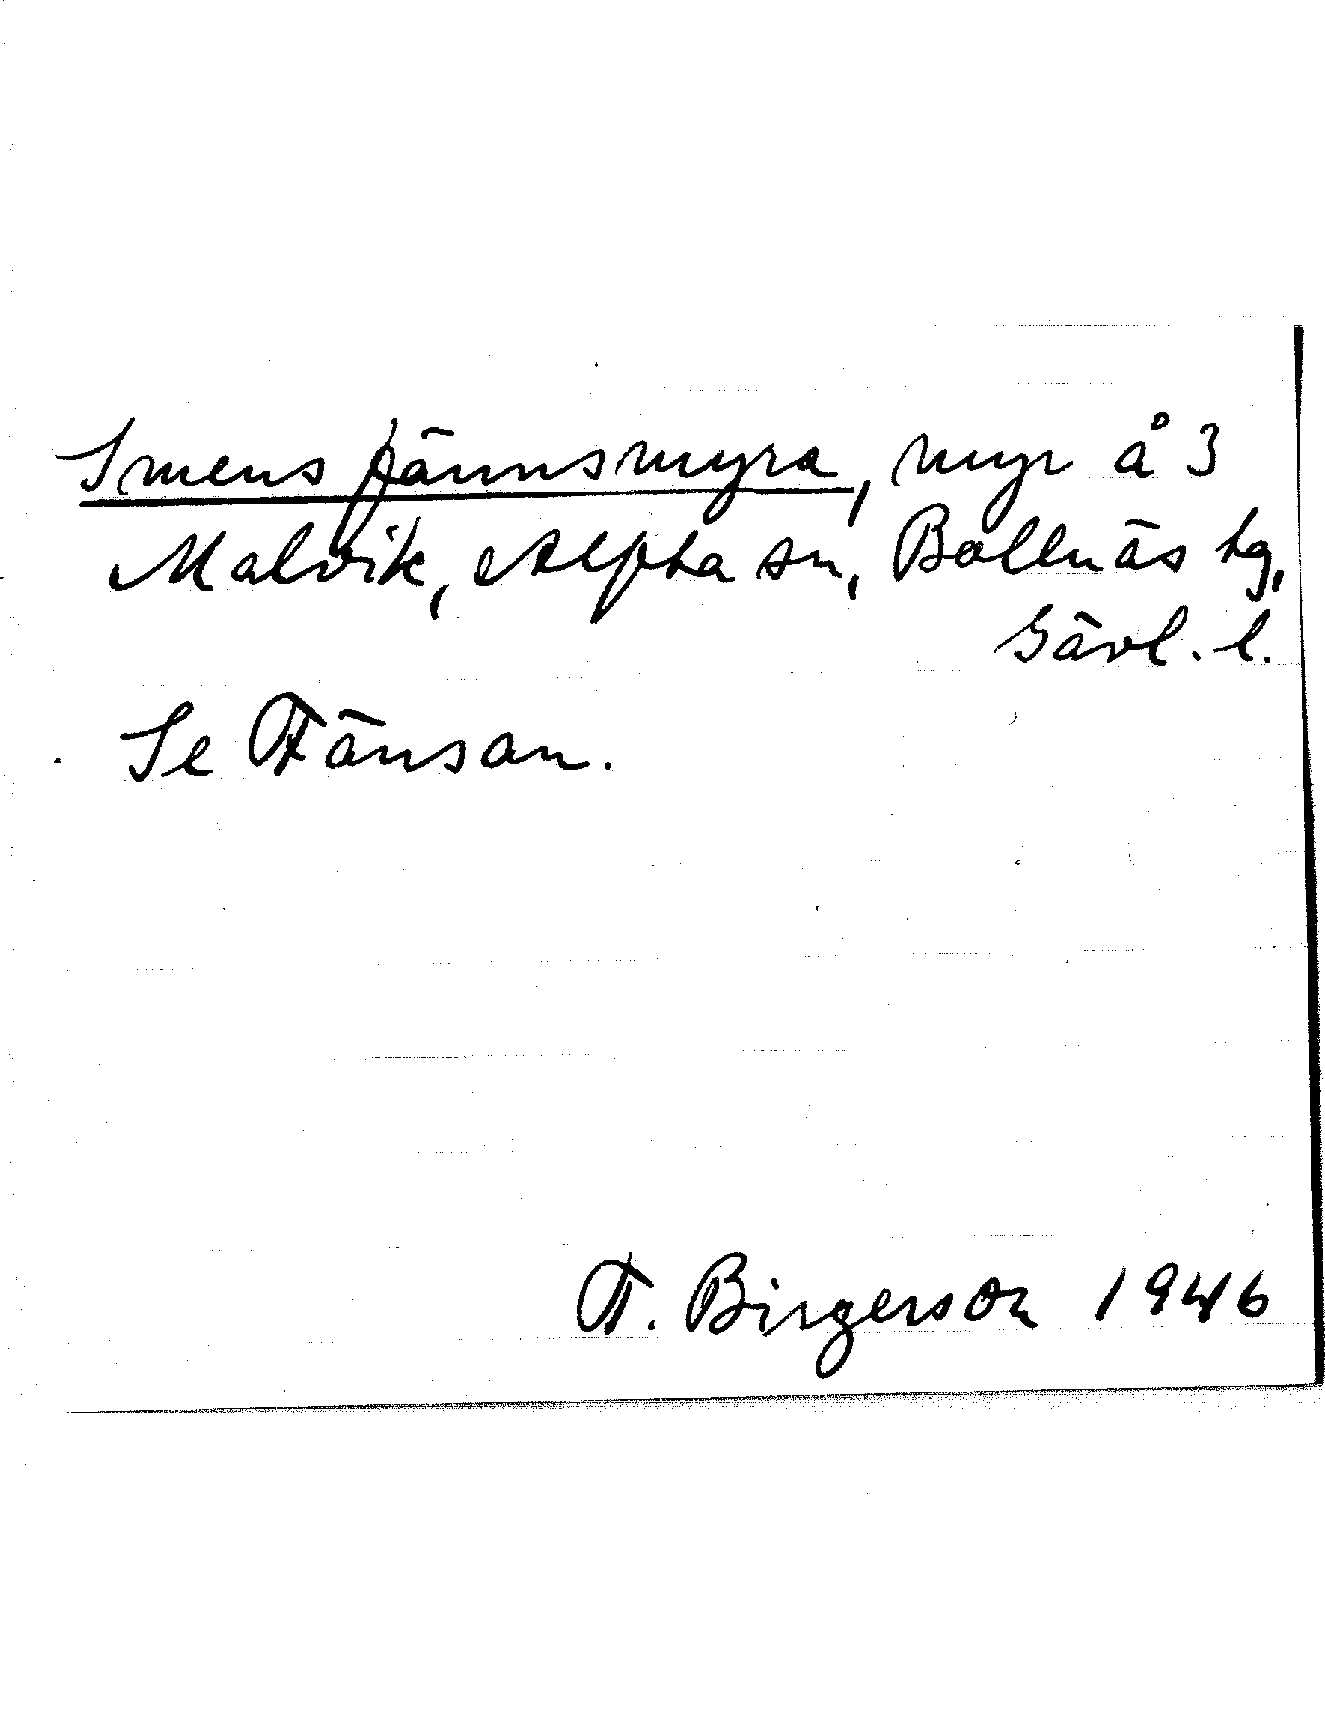 Smensfännsmyra, myr å 3
Malvik, Alfta sn, Bollnäs tg,
Gävl. l.
Se Fänsan.
F. Birgerson 1946